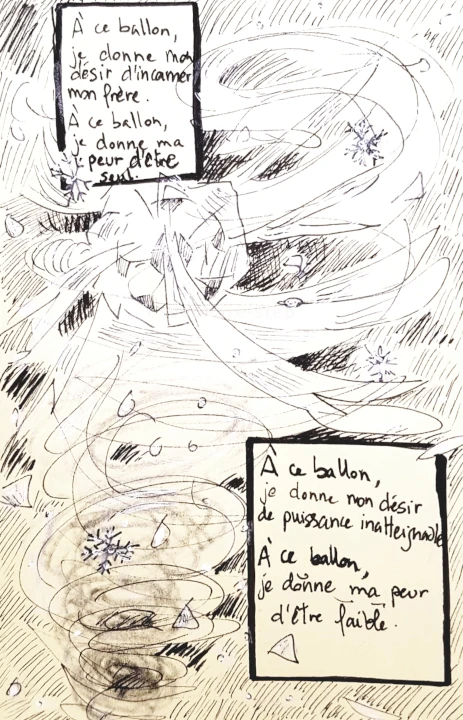 À ce ballon,
je donne mon
désir d'incarner
mon frère.
À ce ballon,
je donne ma
peur d'être
seul.
À ce ballon,
je donne mon désir
de puissance inatteignable
À ce ballon,
je donne ma peur
d'être faible.